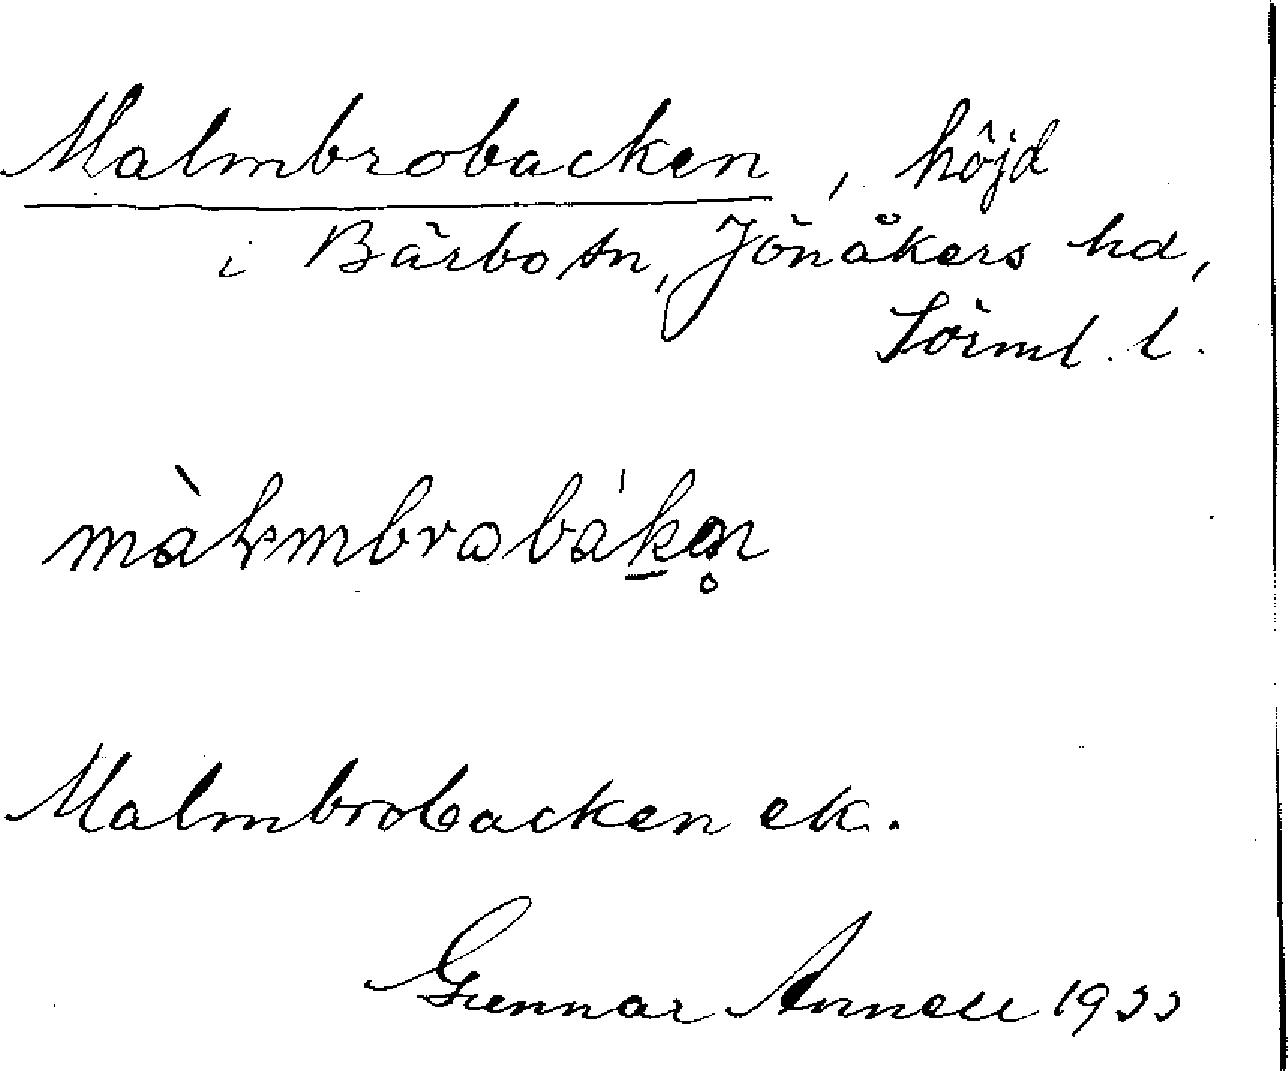 Malmbrobacken, höjd
i Bärbo sn, Jönåkers hd,
Sörml. l.
màlmbrobákən
Malmbrobacken ek.
Gunnar Annell 1933